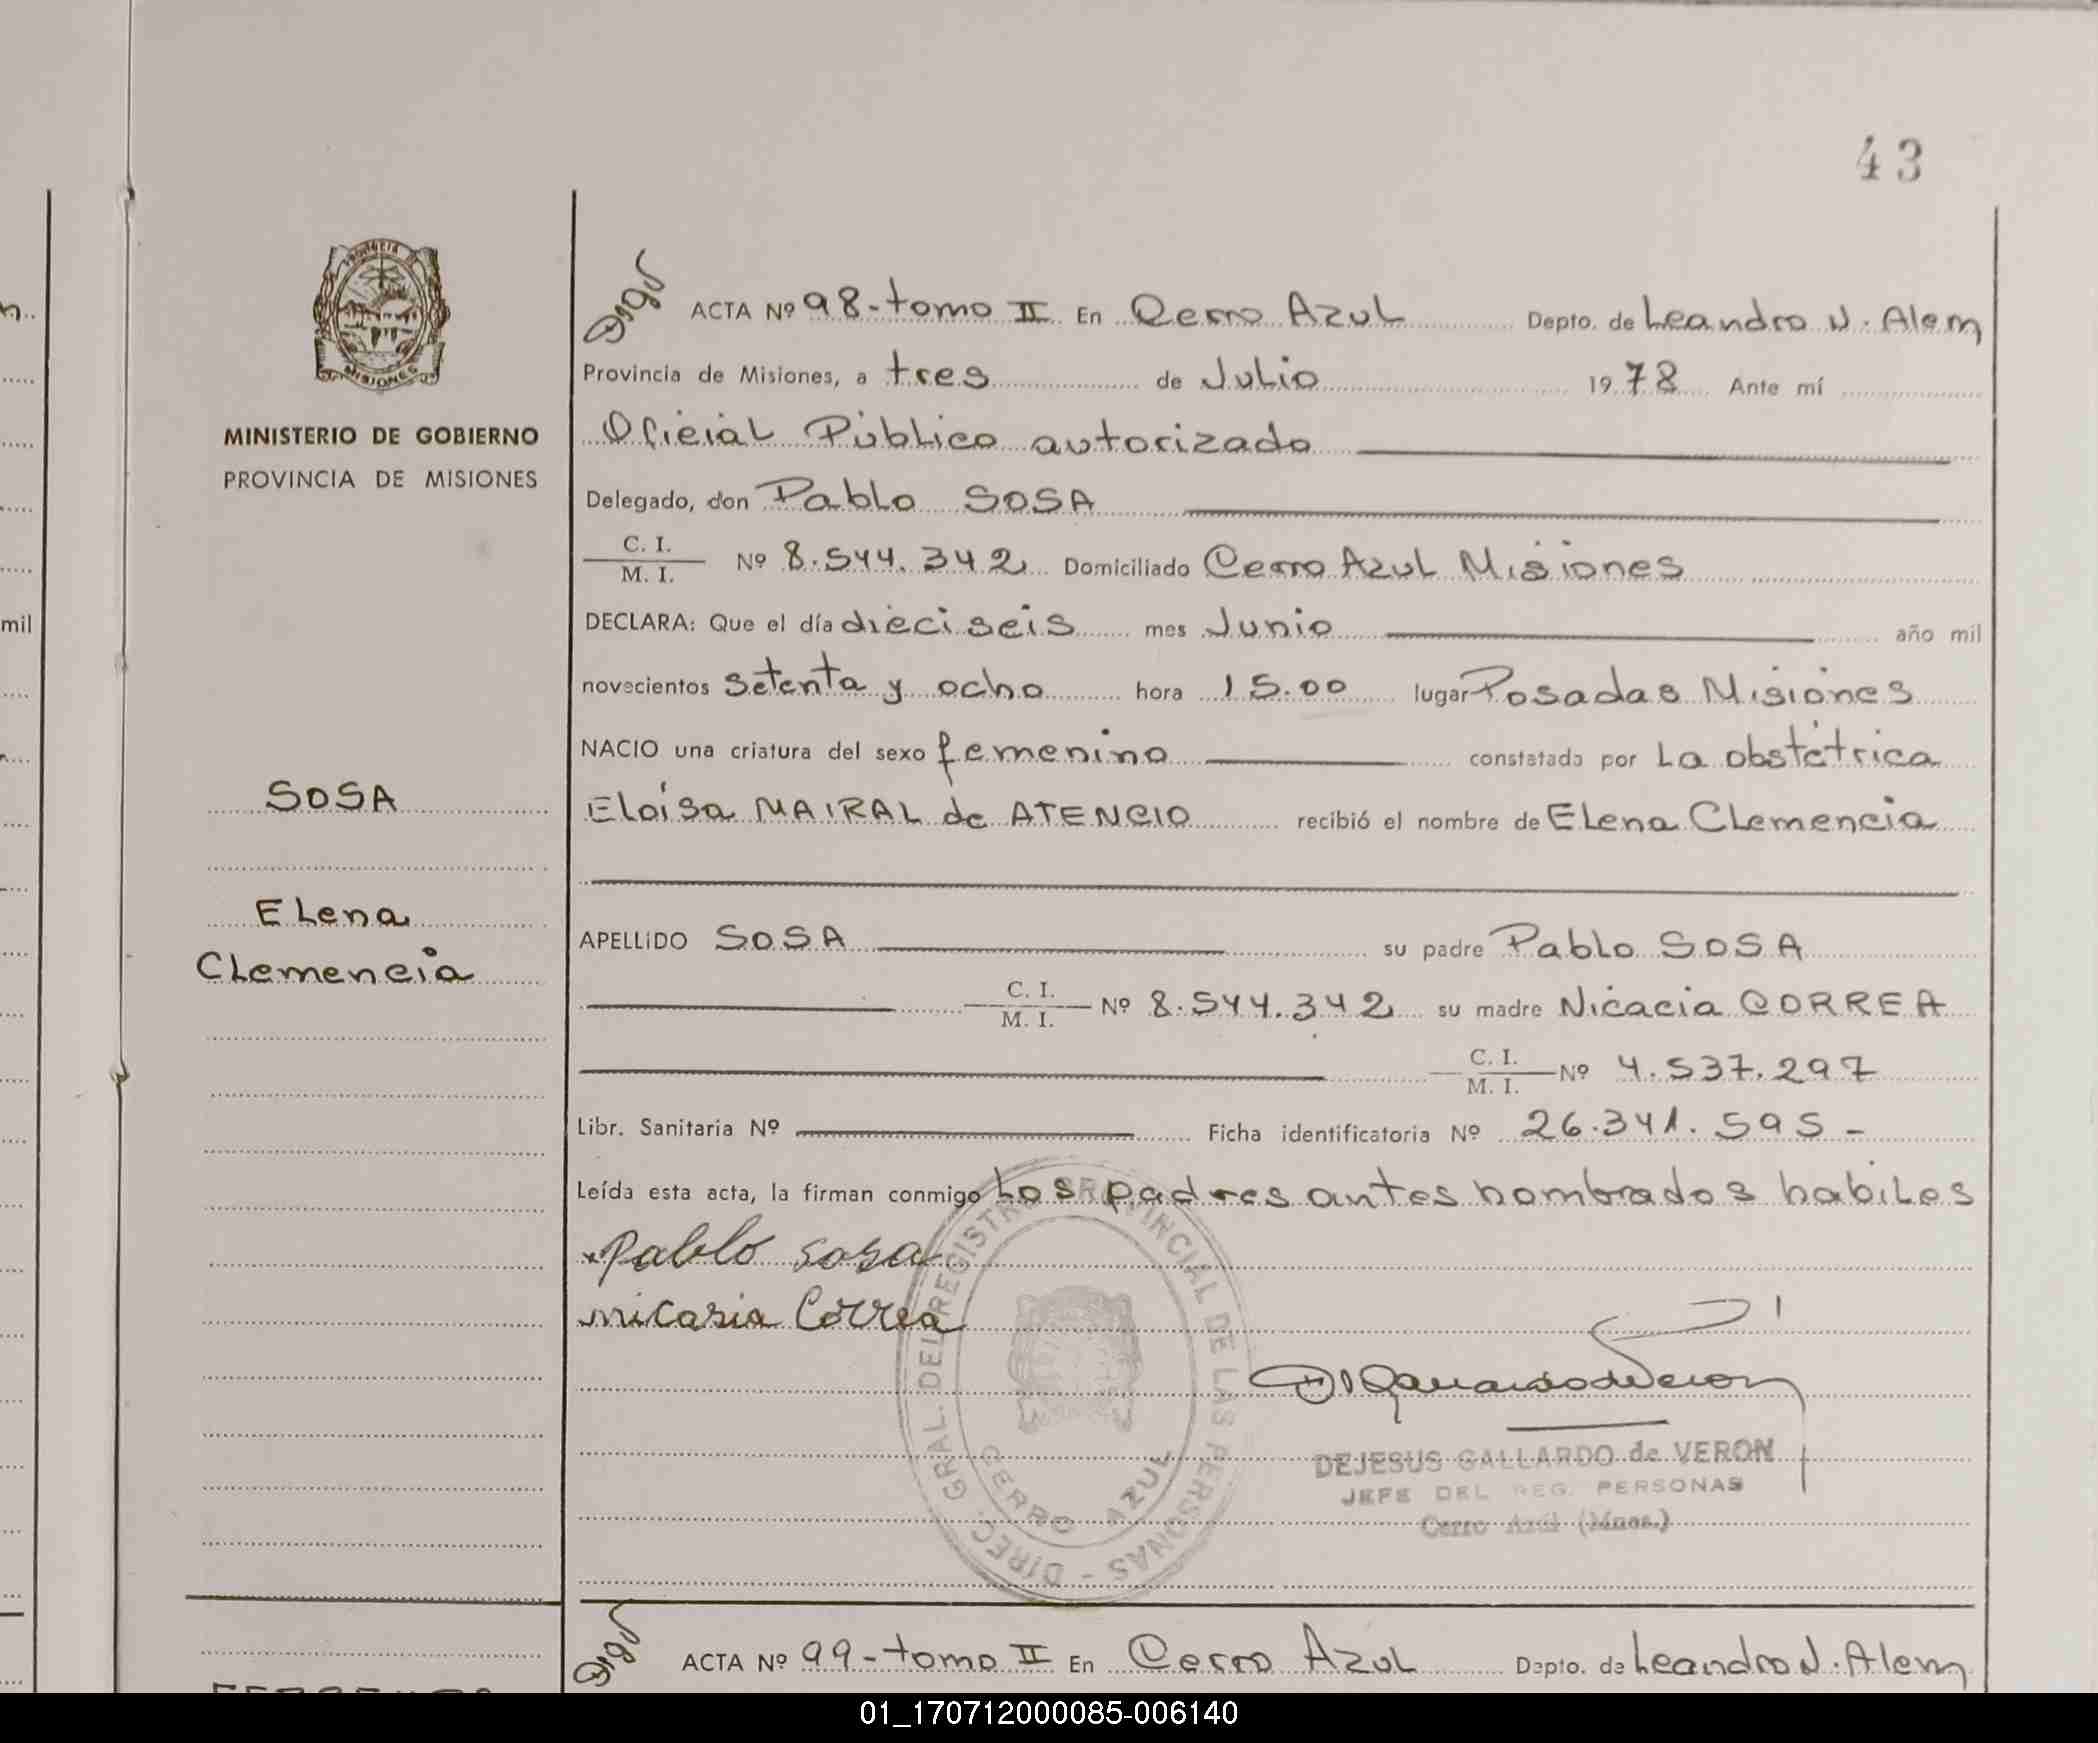 43
PROVINCIA
MISIONES
MINISTERIO DE GOBIERNO
PROVINCIA DE MISIONES
mil
SOSA
Elena
Clemencia
Digo
ACTA Nº 98-tomo II En Cerro Azul Depto. de Leandro N. Alem
Provincia de Misiones, a tres de Julio 1978 Ante mí
Oficial Público autorizado
Delegado, don Pablo SOSA
C. I.
M. I. Nº 8.544.342 Domiciliado Cerro Azul Misiones
DECLARA: Que el día dieciseis mes Junio año mil
novecientos setenta y ocho hora 15.00 lugar Posadas Misiones
NACIO una criatura del sexo femenino constatada por La obstétrica
Eloisa MAIRAL de ATENCIO recibió el nombre de Elena Clemencia
APELLIDO SOSA su padre Pablo SOSA
C. I.
M. I. Nº 8.544.342 su madre Nicacia CORREA
C. I.
M. I. Nº 4.537.297
Libr. Sanitaria Nº Ficha identificatoria Nº 26.341.595-
Leída esta acta, la firman conmigo Los padres antes nombrados habiles
Pablo Sosa
nicasia Correa
DIREC. GRAL. DEL REGISTRO PROVINCIAL DE LAS PERSONAS -
CERRO AZUL
DEJESUS GALLARDO de VERON
JEFE DEL REG. PERSONAS
Cerro Azul (Mnes.)
Digo
ACTA Nº 99-tomo II En Cerro Azul Depto. de Leandro N. Alem
01_170712000085-006140